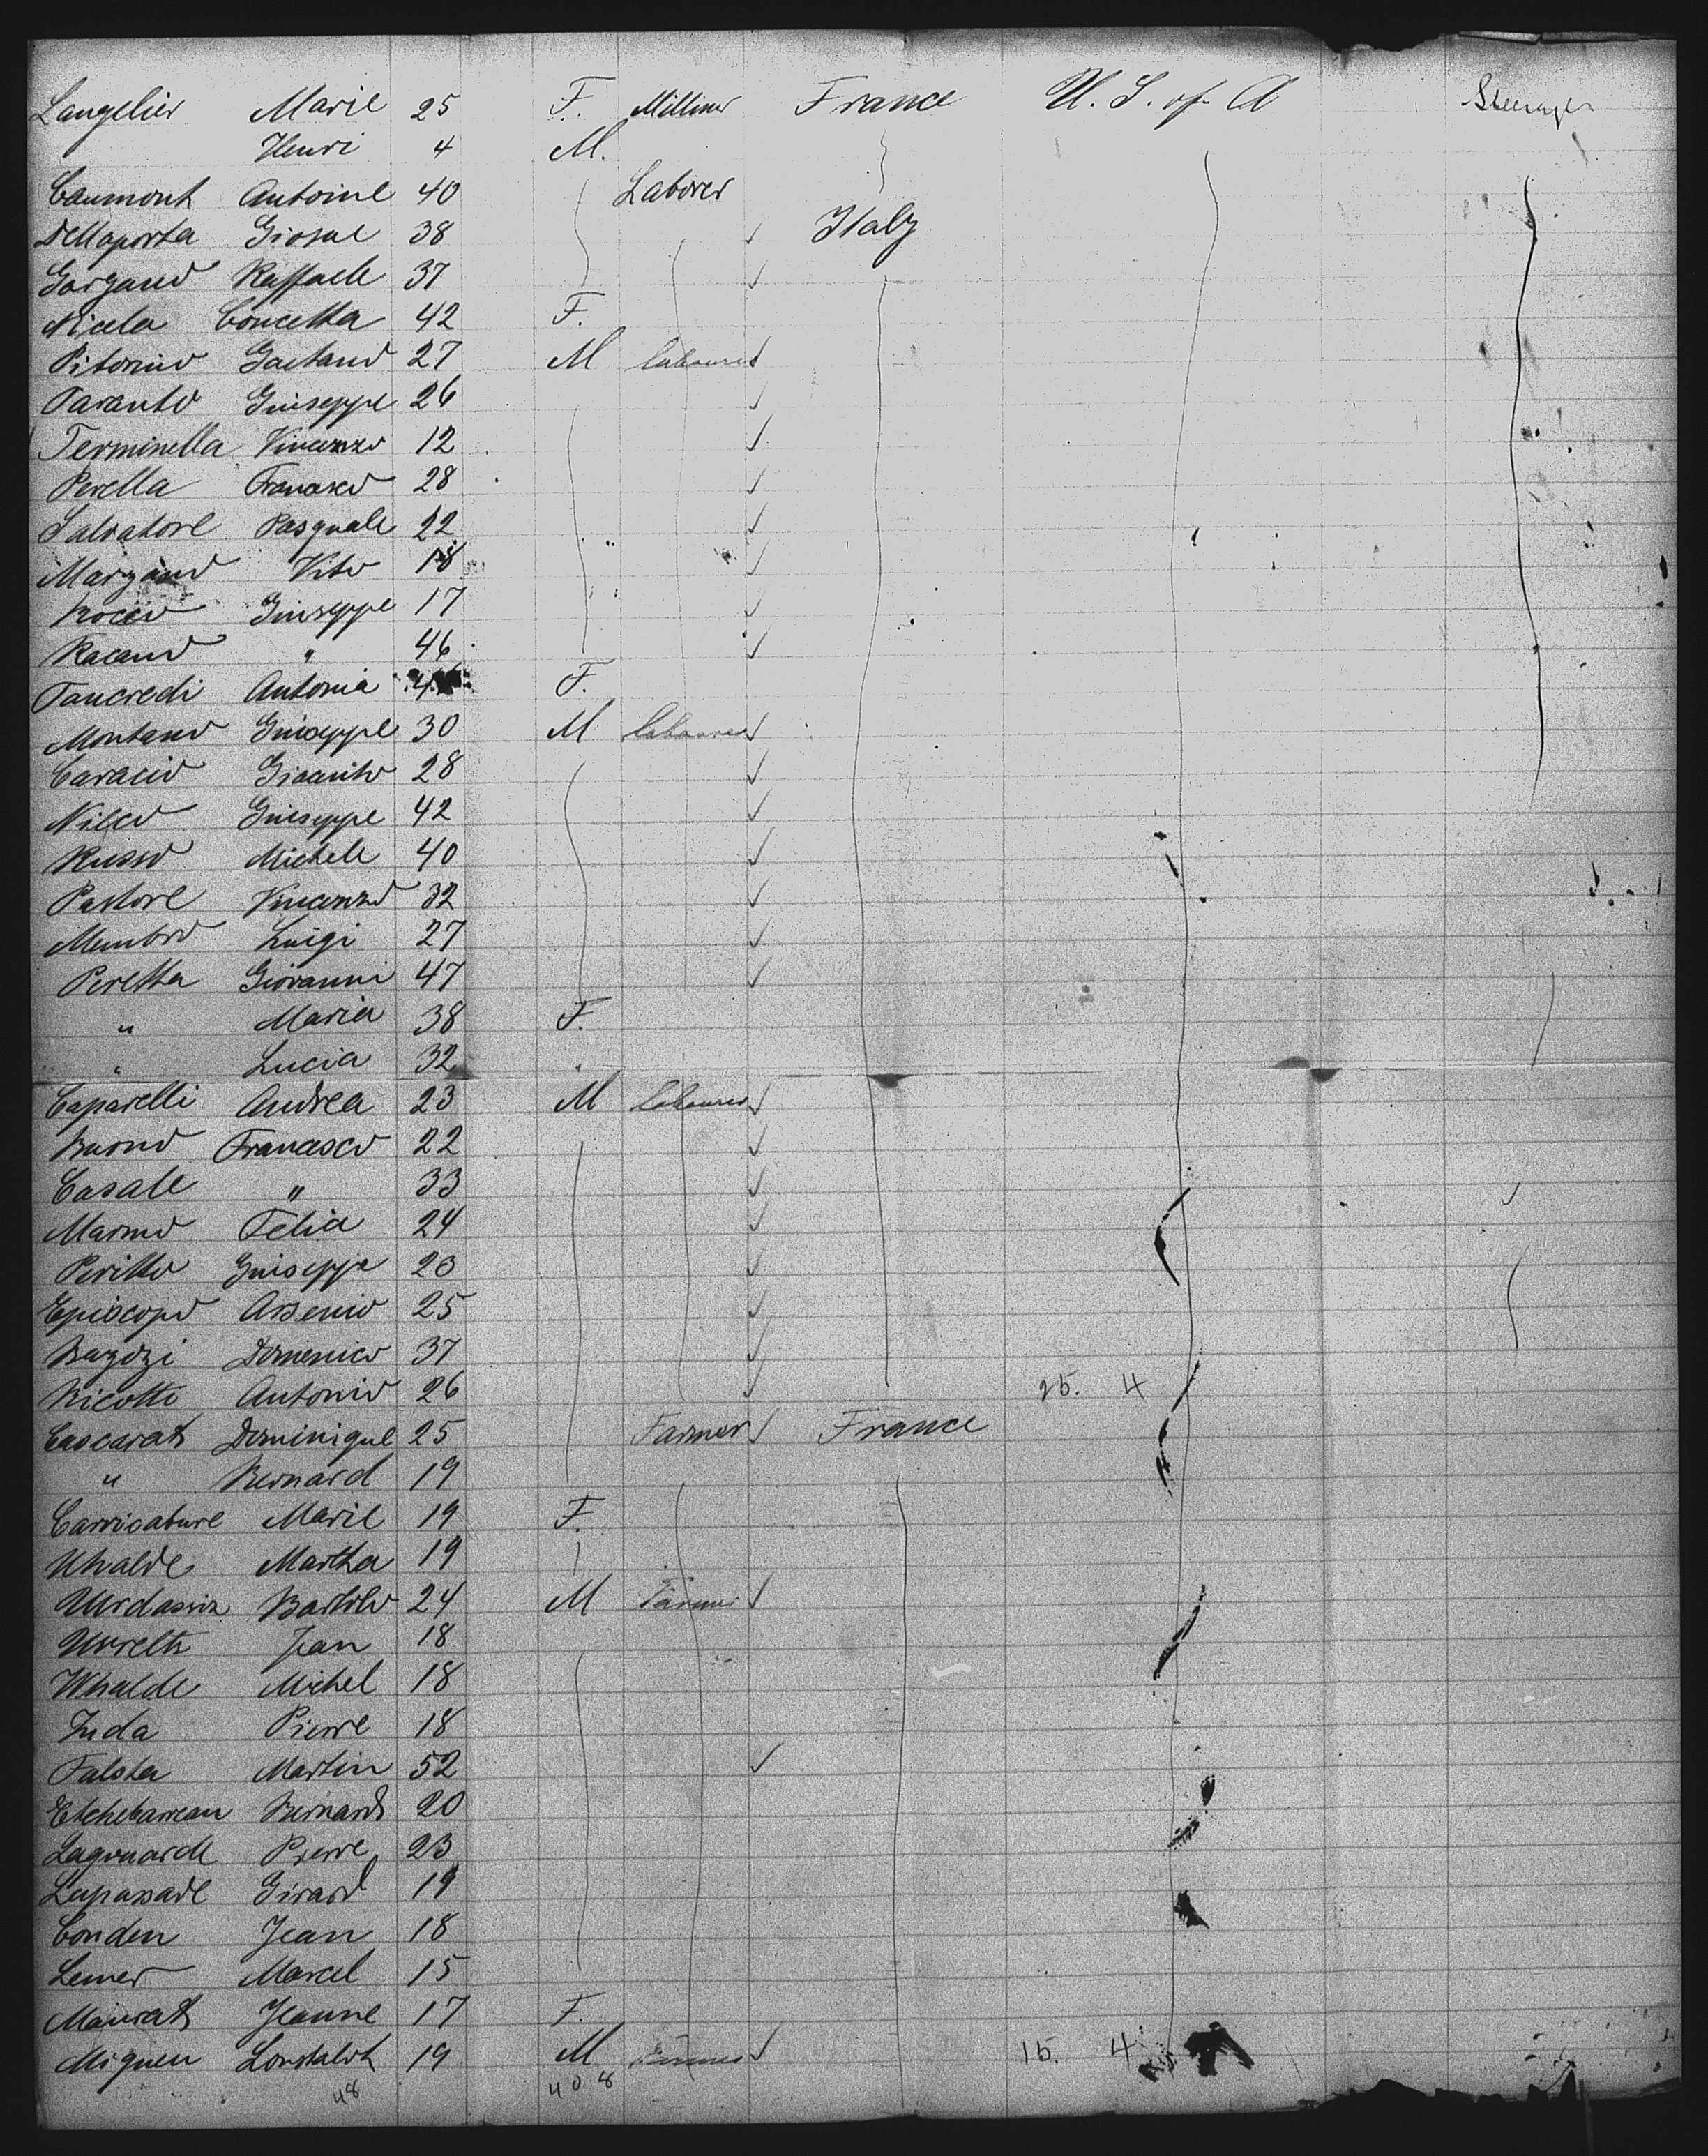 Langelier Marie 25 F. Milliner France U. S. of A Steerage
Henri 4 M.
Caumont Antoine 40 Laborer
Dellaporta Giosue 38 ✓ Italy
Gargano Raffaele 37 ✓
Nicola Concetta 42 F.
Pitorino Gaetano 27 M labourer ✓
Taranto Giuseppe 26 ✓
Terminella Vincenzo 12 ✓
Perella Francesco 28 ✓
Salvatore Pasquale 22 ✓
Vito 18 ✓
Rocco Giuseppe 17 ✓
Racano " 46 ✓
Tancredi Antonia F.
Montano Giuseppe 30 M labourer ✓
Caracio Giacinto 28 ✓
Giuseppe 42 ✓
Russo Michele 40 ✓
Pastore Vincenzo 32 ✓
Membro Luigi 27 ✓
Peretta Giovanni 47 ✓
" Maria 38 F.
" Lucia 32 "
Caparelli Andrea 23 M labourer ✓
Buono Francesco 22 ✓
Casale " 33 ✓
Marino Felia 24 ✓
Perillo Giuseppe 23 ✓
Episcopo Arsenio 25 ✓
Domenico 37 ✓
Ricotti Antonio 26 ✓ 25. 4
Cascarat Dominique 25 Farmer ✓ France
" Bernard 19
Carricature Marie 19 F.
Uhalde Martha 19
24 M Farmer ✓
Jean 18
Whalde Michel 18
Pierre 18
Falsta Martin 52 ✓
Bernard 20
Pierre 23
Lapassade Girard 19
Conden Jean 18
Lemer Marcel 15
Maurat Jeanne 17 F.
Miguen Loustalot 19 M Farmer ✓ 15. 4
48 408